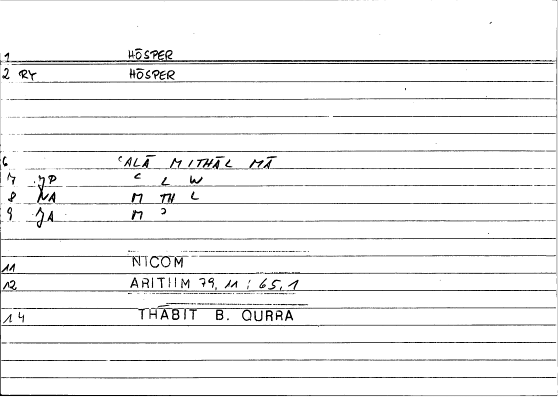 1 HŌSPER
2 RY HŌSPER
6 ʿALĀ MITHĀL MĀ
7 JP ʿ L W
8 NA M TH L
9 JA M ʾ
11 NICOM
12 ARITIIM 79, 11 ; 65, 1
14 THĀBIT B. QURRA